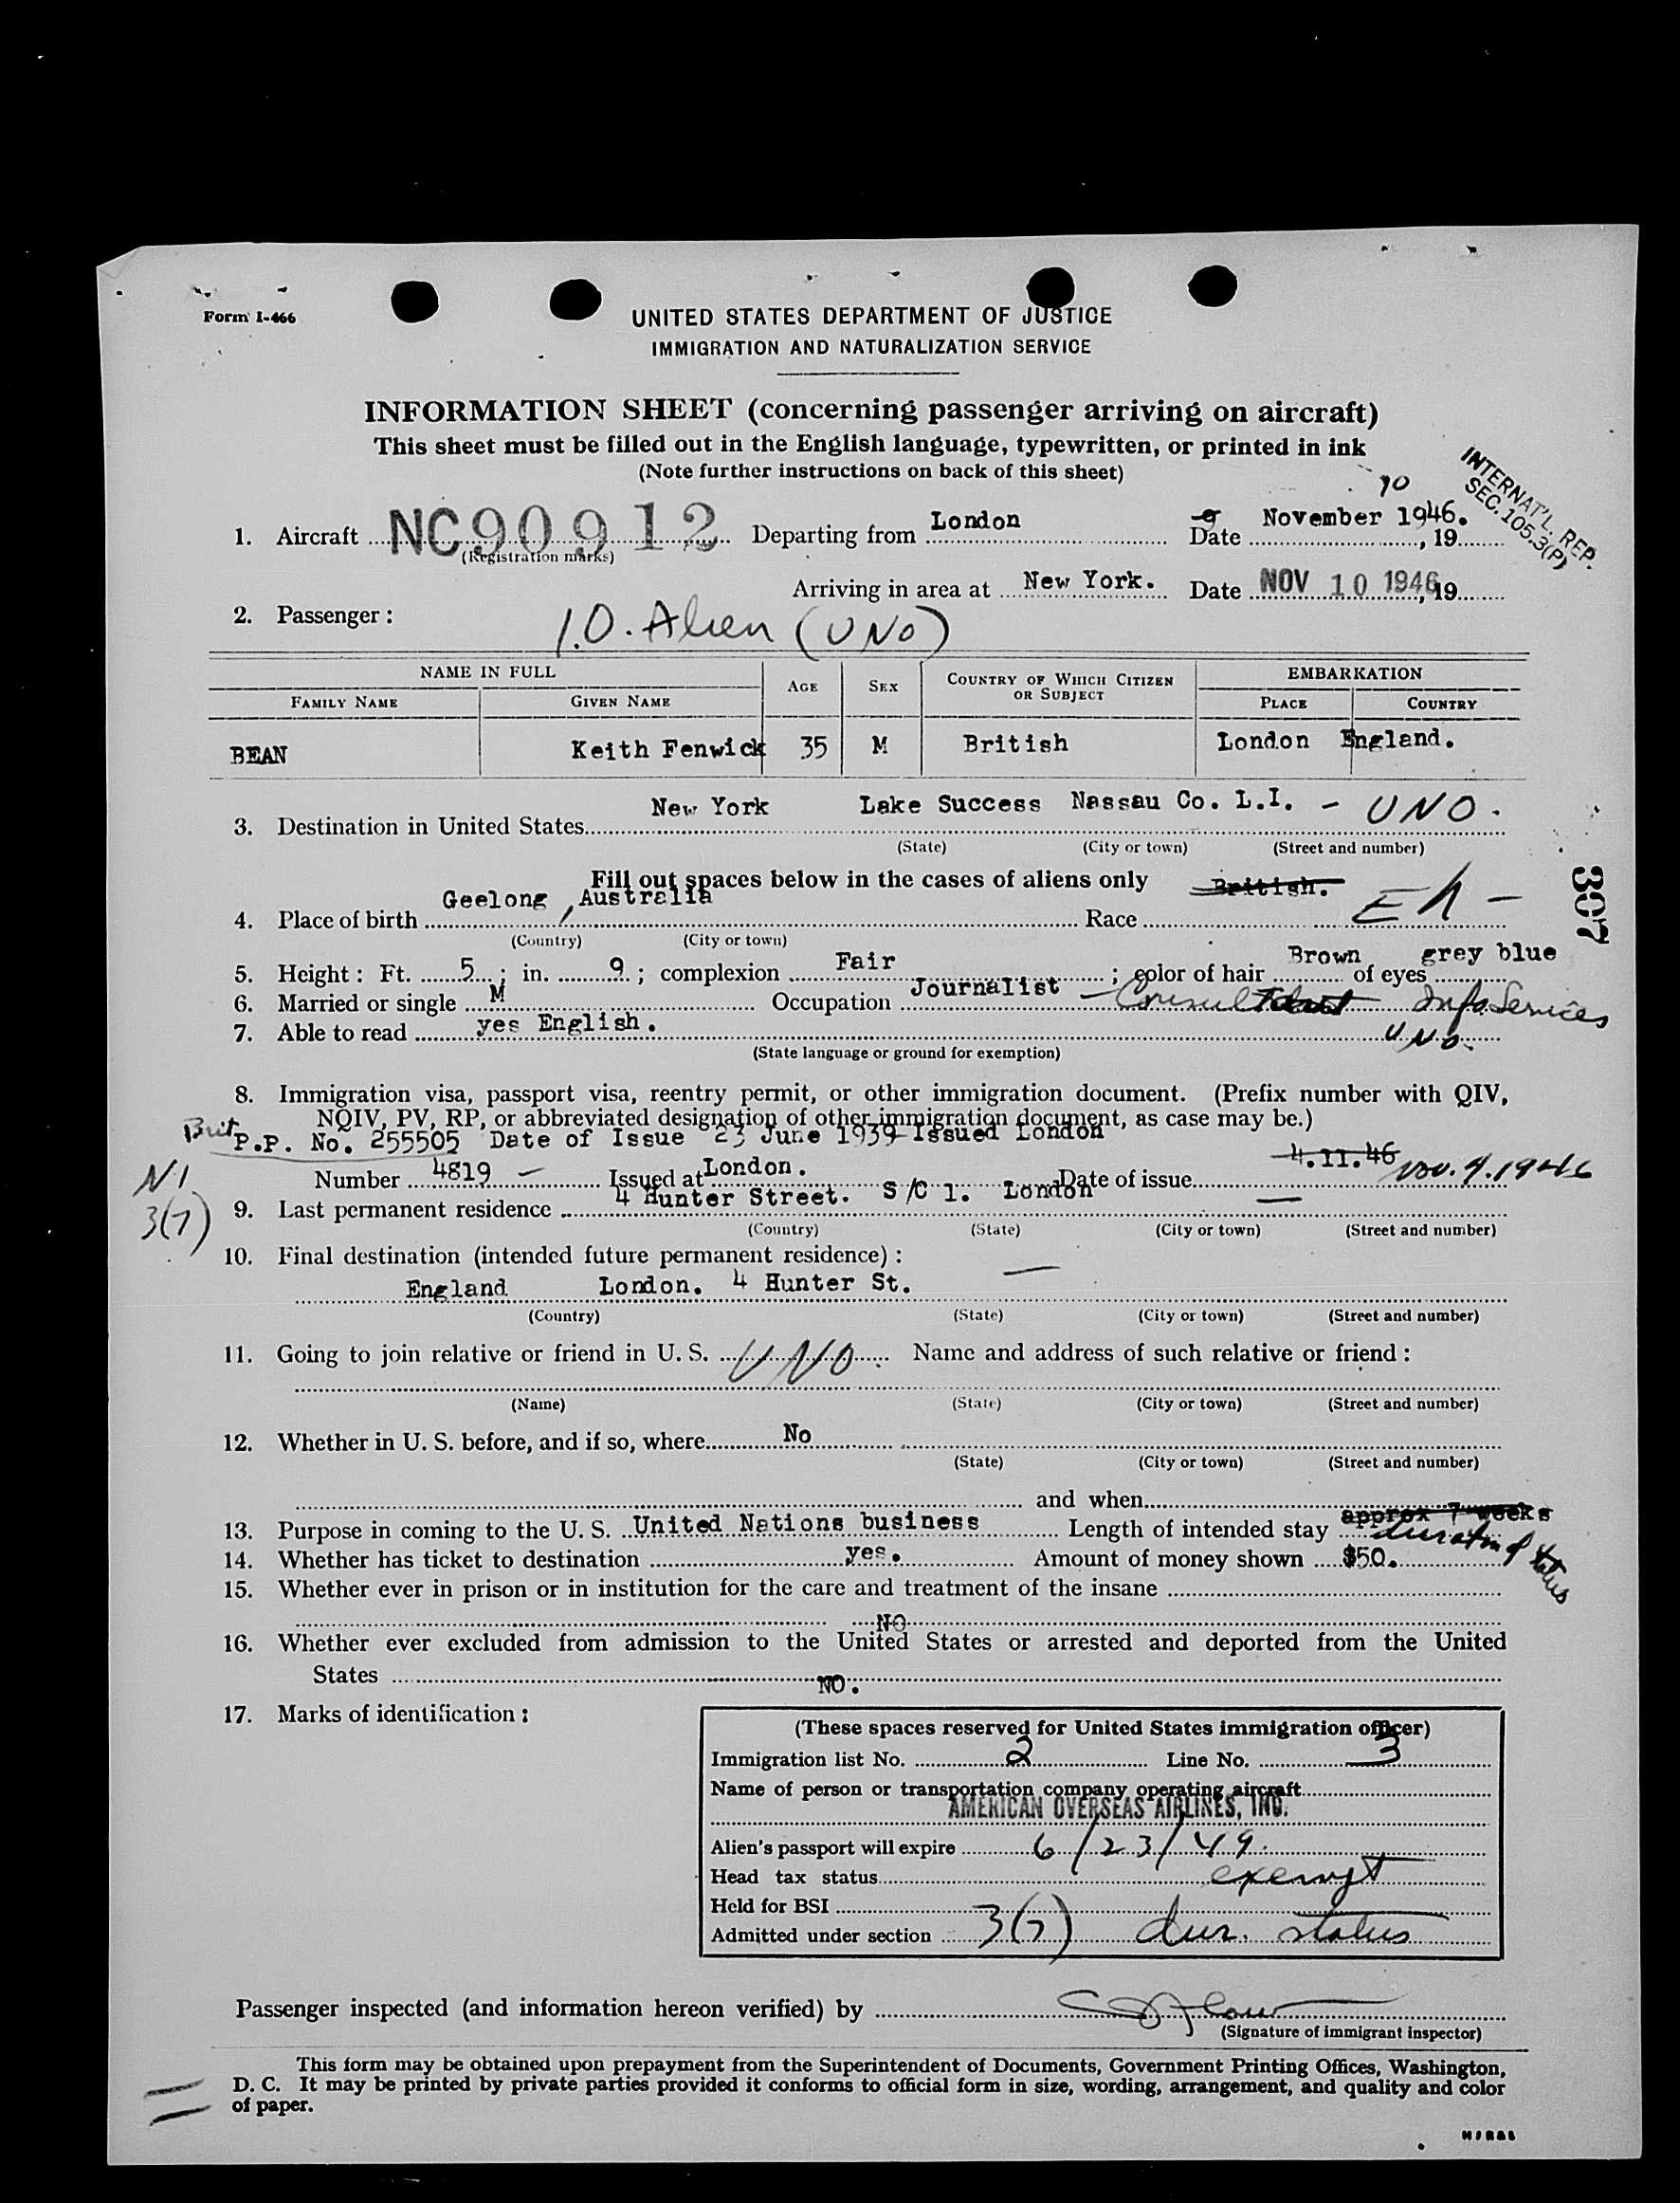 Form I-466
UNITED STATES DEPARTMENT OF JUSTICE
IMMIGRATION AND NATURALIZATION SERVICE
INFORMATION SHEET (concerning passenger arriving on aircraft)
This sheet must be filled out in the English language, typewritten, or printed in ink
(Note further instructions on back of this sheet)
INTERNAT'L. REP.
SEC. 105.3(P)
10
1. Aircraft NC90912 Departing from London Date 9 November 1946. , 19
(Registration marks)
Arriving in area at New York. Date NOV 10 1946, 19
2. Passenger: I.O. Alien (UNO)
NAME IN FULL AGE SEX COUNTRY OF WHICH CITIZEN OR SUBJECT EMBARKATION
FAMILY NAME GIVEN NAME PLACE COUNTRY
BEAN Keith Fenwick 35 M British London England.
3. Destination in United States New York Lake Success Nassau Co. L.I. - UNO.
(State) (City or town) (Street and number)
Fill out spaces below in the cases of aliens only
307
4. Place of birth Geelong, Australia Race British. Eh -
(Country) (City or town)
5. Height: Ft. 5; in. 9; complexion Fair; color of hair Brown of eyes grey blue
6. Married or single M Occupation Journalist - Consultant Info Services
7. Able to read yes English. U.N.O.
(State language or ground for exemption)
8. Immigration visa, passport visa, reentry permit, or other immigration document. (Prefix number with QIV,
NQIV, PV, RP, or abbreviated designation of other immigration document, as case may be.)
Brit P.P. No. 255505 Date of Issue 23 June 1939 Issued London
Number 4819 - Issued at London. Date of issue 4.11.46 Nov. 4. 1946
NI
3(7)
9. Last permanent residence 4 Hunter Street. S/C 1. London -
(Country) (State) (City or town) (Street and number)
10. Final destination (intended future permanent residence):
England London. 4 Hunter St. -
(Country) (State) (City or town) (Street and number)
11. Going to join relative or friend in U. S. UNO. Name and address of such relative or friend:
(Name) (State) (City or town) (Street and number)
12. Whether in U. S. before, and if so, where No
(State) (City or town) (Street and number)
and when
13. Purpose in coming to the U. S. United Nations business Length of intended stay approx 7 weeks duration of status
14. Whether has ticket to destination yes. Amount of money shown $50.
15. Whether ever in prison or in institution for the care and treatment of the insane
NO
16. Whether ever excluded from admission to the United States or arrested and deported from the United
States NO.
17. Marks of identification:
(These spaces reserved for United States immigration officer)
Immigration list No. 2 Line No. 3
Name of person or transportation company operating aircraft
AMERICAN OVERSEAS AIRLINES, INC.
Alien's passport will expire 6/23/49.
Head tax status exempt
Held for BSI
Admitted under section 3(7) dur. status
Passenger inspected (and information hereon verified) by
(Signature of immigrant inspector)
This form may be obtained upon prepayment from the Superintendent of Documents, Government Printing Offices, Washington,
D. C. It may be printed by private parties provided it conforms to official form in size, wording, arrangement, and quality and color
of paper.